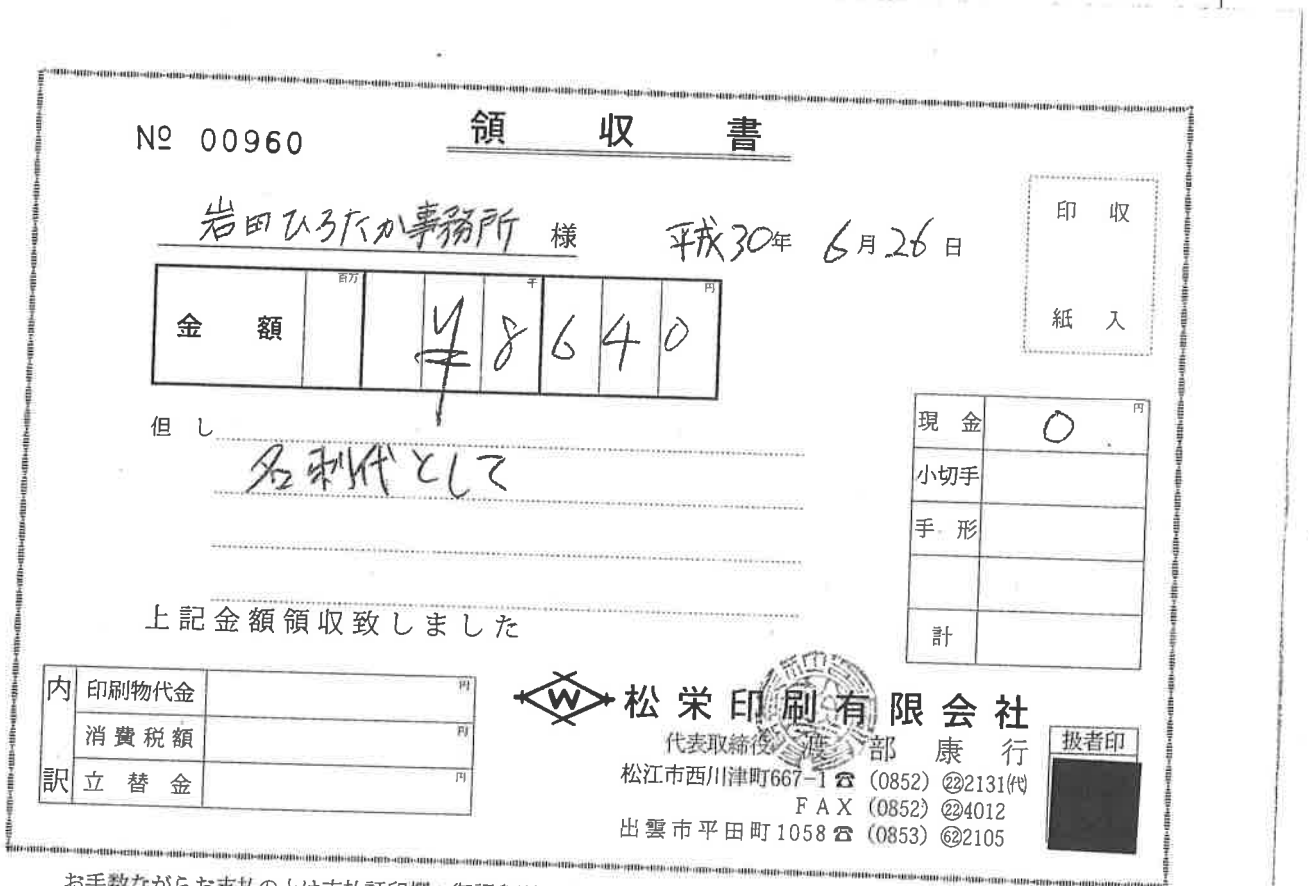 領収書
№ 00960
岩田ひろたか事務所 様
平成30年 6月26日
印収
紙入
金額 百万 千 円
¥8640
但し
名刺代として
上記金額領収致しました
現金 ○ 円
小切手
手形
計
内訳
印刷物代金 円
消費税額 円
立替金 円
W 松栄印刷有限会社
代表取締役 渡部康行
松江市西川津町667-1 ☎ (0852) ㉒2131㈹
FAX (0852) ㉒4012
出雲市平田町1058 ☎ (0853) 622105
扱者印